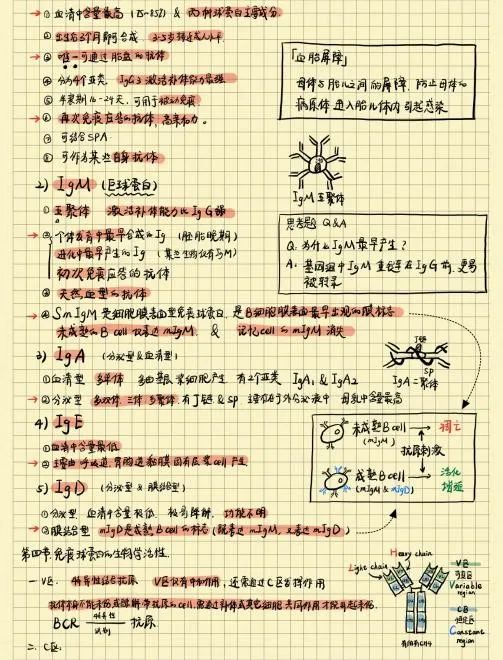 ① 血清中含量最高 (75-85%) & 丙种球蛋白主要成分
② 出生后3个月即可合成, 3-5岁接近成人水平
③ 唯一可通过胎盘的抗体
④ 分为4个亚类, IgG3 激活补体能力最强
⑤ 半衰期16-24天, 可用于被动免疫
⑥ 再次免疫应答的抗体, 高亲和力。
⑦ 可结合SPA
⑧ 可作为某些自身抗体
「血胎屏障」
母体与胎儿之间的屏障, 防止母体的
病原体进入胎儿体内引起感染
IgM 五聚体
2) IgM (巨球蛋白)
① 五聚体 激活补体能力比IgG强
② 个体发育中最早合成的Ig (胚胎晚期)
进化中最早产生的Ig
初次免疫应答的抗体
③ 天然血型的抗体
④ SmIgM 是细胞膜表面型免疫球蛋白, 是B细胞膜表面最早出现的膜标志
未成熟的B cell 仅表达mIgM, & 记忆cell的mIgM 消失
思考题 Q&A
Q: 为什么IgM最早产生?
A: 基因组中IgM 重链在IgG前, 更易
被转录
3) IgA (分泌型 & 血清型)
① 血清型 单体 有2个亚类 IgA1 & IgA2
② 分泌型 有J链 & SP 母乳中含量最高
J链
SP
IgA 二聚体
4) IgE
① 血清中含量最低
② 主要由呼吸道, 胃肠道黏膜固有层浆cell产生
5) IgD (分泌型 & 膜结合型)
① 分泌型 血清中含量较低, 极易降解, 功能不明
② 膜结合型 mIgD是成熟B cell的标志 (既表达mIgM, 又表达mIgD)
未成熟B cell → 凋亡
(mIgM)
抗原刺激
成熟B cell → 活化
(mIgM & mIgD) 增殖
第四节 免疫球蛋白的生物学活性.
一. V区: 特异性结合抗原 V区仅有中和作用, 还需通过C区发挥作用
BCR 特异性 识别 抗原.
二. C区:
Heavy chain
Light chain
V区
可变区
Variable
region
C区
恒定区
Constant
region